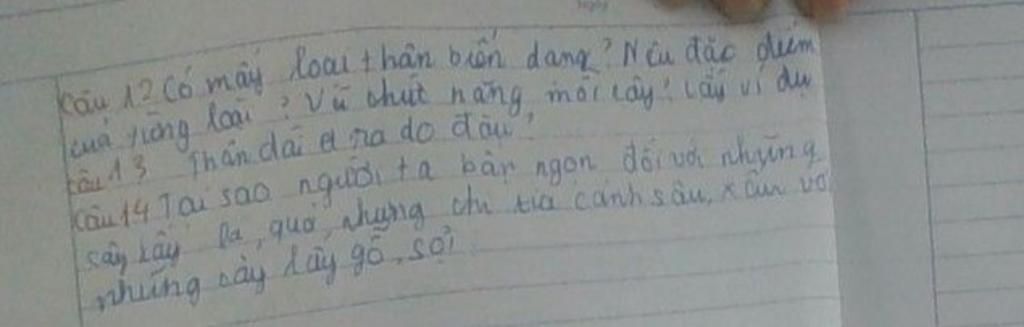 Câu 12 Có mấy loại thân biến dạng? Nêu đặc điểm
của từng loại? Và chức năng mỗi cây? Lấy ví dụ
câu 13 Thân dài ra do đâu?
Câu 14 Tại sao người ta bấm ngọn đối với những
cây lấy quả, nhưng chỉ tỉa cành sâu, xấu với
những cây lấy gỗ, sợi